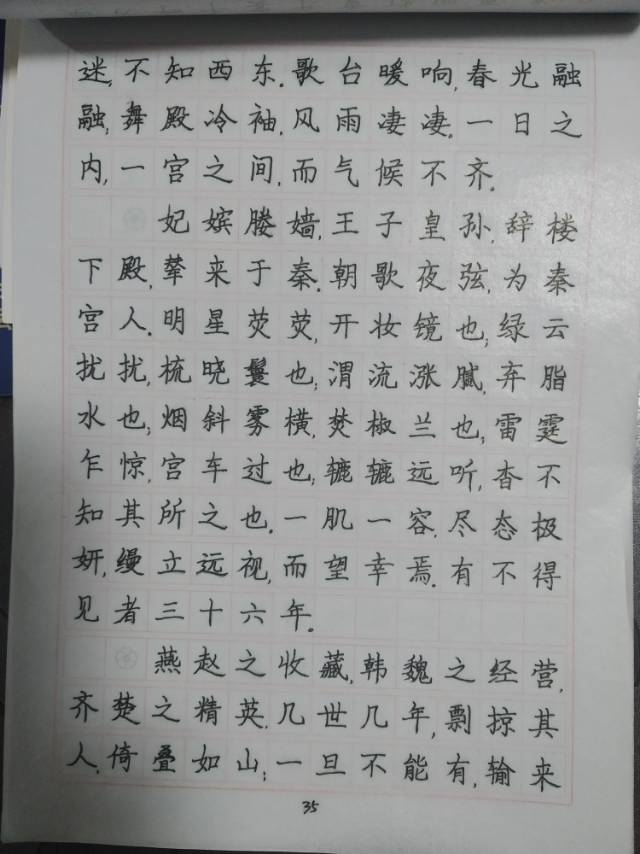 迷,不知西东.歌台暖响,春光融
融,舞殿冷袖.风雨凄凄.一日之
内,一宫之间,而气候不齐.
妃嫔媵嫱,王子皇孙.辞楼
下殿,辇来于秦.朝歌夜弦,为秦
宫人.明星荧荧,开妆镜也;绿云
扰扰,梳晓鬟也;渭流涨腻,弃脂
水也;烟斜雾横,焚椒兰也;雷霆
乍惊,宫车过也;辘辘远听,杳不
知其所之也.一肌一容,尽态极
妍,缦立远视,而望幸焉.有不得
见者三十六年.
燕赵之收藏,韩魏之经营,
齐楚之精英.几世几年,剽掠其
人.倚叠如山;一旦不能有,输来
35